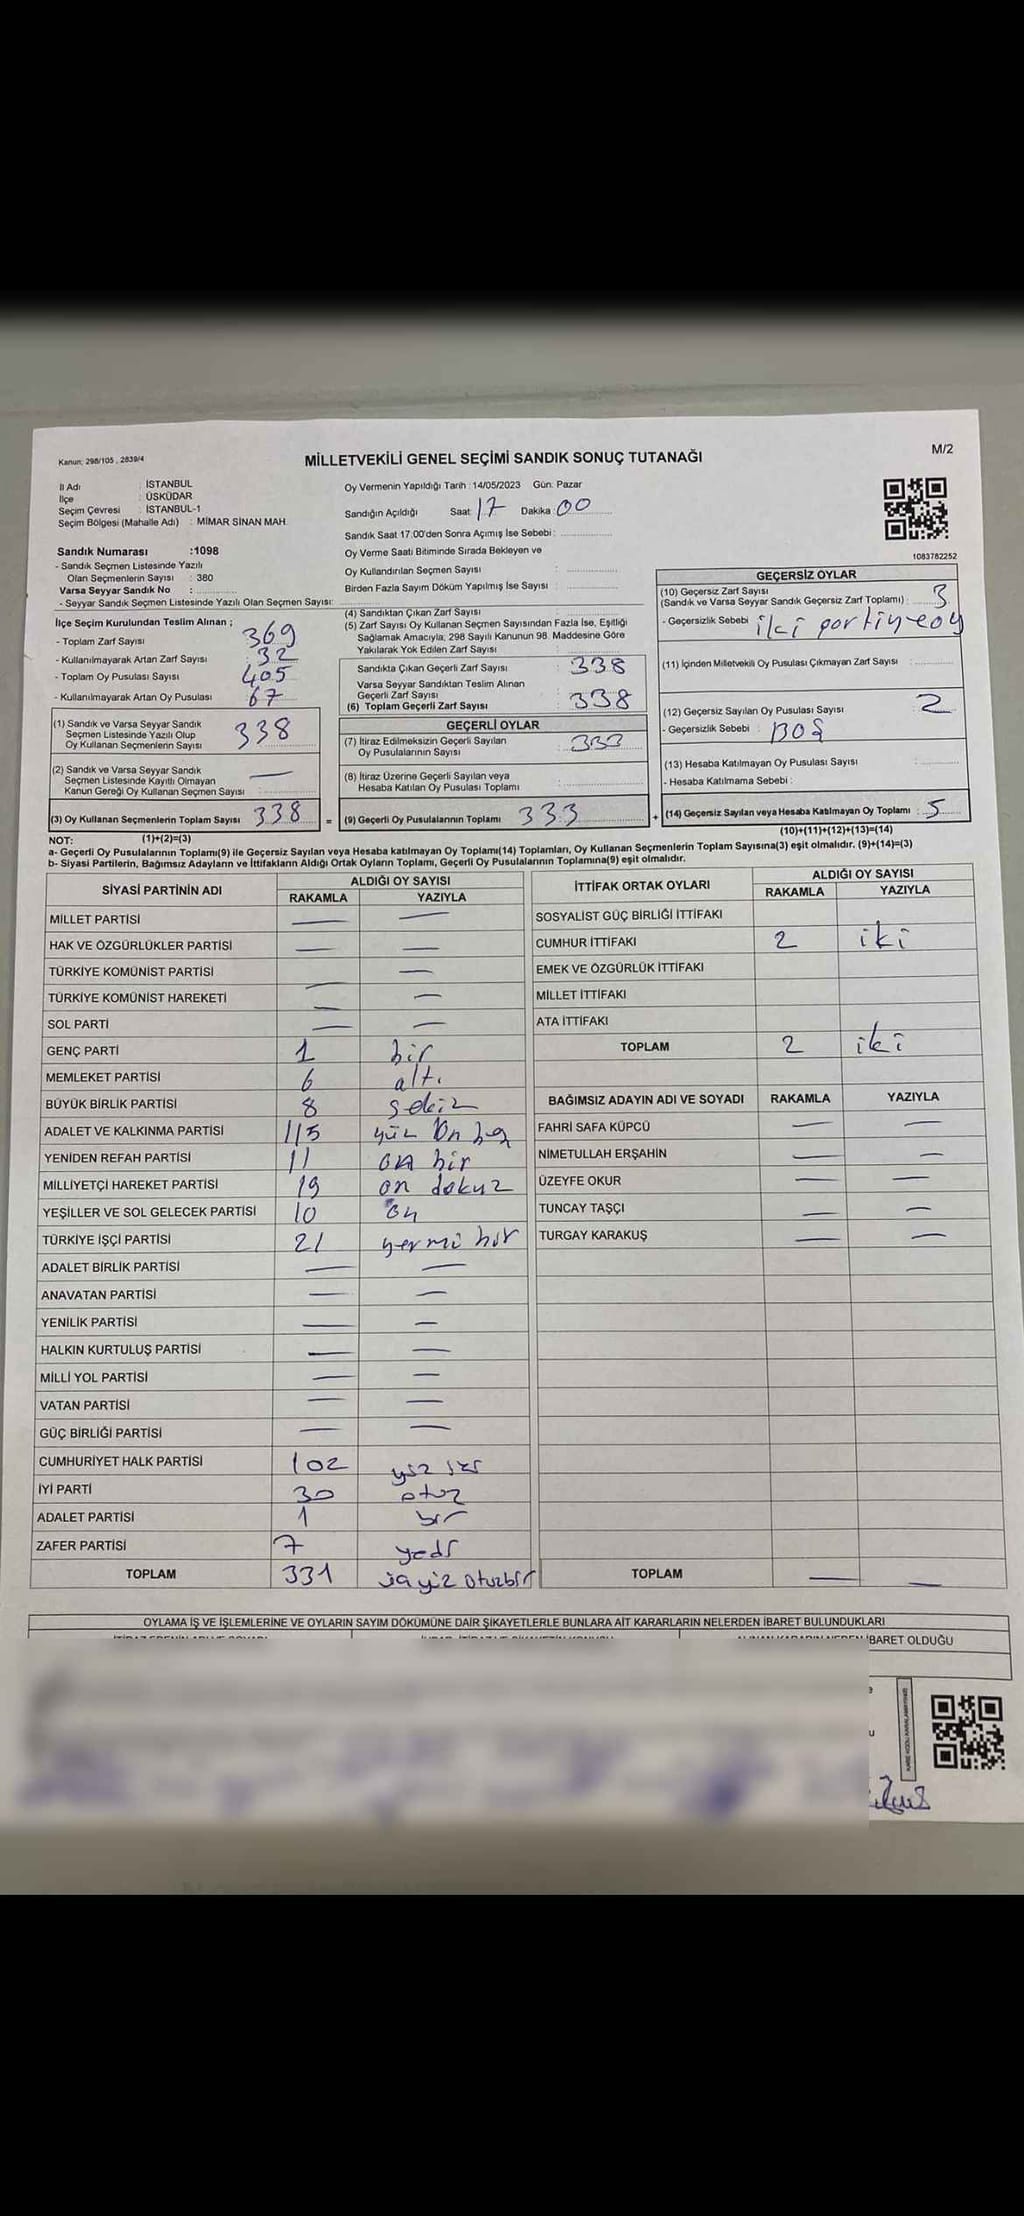 Kanun: 298/105 , 2839/4
M/2
MİLLETVEKİLİ GENEL SEÇİMİ SANDIK SONUÇ TUTANAĞI
İl Adı : İSTANBUL
İlçe : ÜSKÜDAR
Seçim Çevresi : İSTANBUL-1
Seçim Bölgesi (Mahalle Adı) : MİMAR SİNAN MAH.
Sandık Numarası :1098
- Sandık Seçmen Listesinde Yazılı
Olan Seçmenlerin Sayısı : 380
Varsa Seyyar Sandık No :
- Seyyar Sandık Seçmen Listesinde Yazılı Olan Seçmen Sayısı:
Oy Vermenin Yapıldığı Tarih : 14/05/2023 Gün: Pazar
Sandığın Açıldığı Saat: 17 Dakika: 00
Sandık Saat 17:00'den Sonra Açımış İse Sebebi :
Oy Verme Saati Bitiminde Sırada Bekleyen ve
Oy Kullandırılan Seçmen Sayısı :
Birden Fazla Sayım Döküm Yapılmış İse Sayısı :
1083782252
İlçe Seçim Kurulundan Teslim Alınan ;
- Toplam Zarf Sayısı : 369
- Kullanılmayarak Artan Zarf Sayısı : 32
- Toplam Oy Pusulası Sayısı : 405
- Kullanılmayarak Artan Oy Pusulası : 67
(1) Sandık ve Varsa Seyyar Sandık
Seçmen Listesinde Yazılı Olup
Oy Kullanan Seçmenlerin Sayısı 338
(2) Sandık ve Varsa Seyyar Sandık
Seçmen Listesinde Kayıtlı Olmayan
Kanun Gereği Oy Kullanan Seçmen Sayısı : —
(3) Oy Kullanan Seçmenlerin Toplam Sayısı : 338 =
(4) Sandıktan Çıkan Zarf Sayısı :
(5) Zarf Sayısı Oy Kullanan Seçmen Sayısından Fazla İse, Eşitliği
Sağlamak Amacıyla, 298 Sayılı Kanunun 98. Maddesine Göre
Yakılarak Yok Edilen Zarf Sayısı :
Sandıkta Çıkan Geçerli Zarf Sayısı : 338
Varsa Seyyar Sandıktan Teslim Alınan
Geçerli Zarf Sayısı :
(6) Toplam Geçerli Zarf Sayısı : 338
GEÇERLİ OYLAR
(7) İtiraz Edilmeksizin Geçerli Sayılan
Oy Pusulalarının Sayısı : 333
(8) İtiraz Üzerine Geçerli Sayılan veya
Hesaba Katılan Oy Pusulası Toplamı :
(9) Geçerli Oy Pusulalarının Toplamı : 333 +
GEÇERSİZ OYLAR
(10) Geçersiz Zarf Sayısı
(Sandık ve Varsa Seyyar Sandık Geçersiz Zarf Toplamı) : 3
- Geçersizlik Sebebi : iki partiye oy
(11) İçinden Milletvekili Oy Pusulası Çıkmayan Zarf Sayısı :
(12) Geçersiz Sayılan Oy Pusulası Sayısı : 2
- Geçersizlik Sebebi : BOŞ
(13) Hesaba Katılmayan Oy Pusulası Sayısı :
- Hesaba Katılmama Sebebi :
(14) Geçersiz Sayılan veya Hesaba Katılmayan Oy Toplamı : 5
NOT: (1)+(2)=(3) (10)+(11)+(12)+(13)=(14)
a- Geçerli Oy Pusulalarının Toplamı(9) ile Geçersiz Sayılan veya Hesaba katılmayan Oy Toplamı(14) Toplamları, Oy Kullanan Seçmenlerin Toplam Sayısına(3) eşit olmalıdır. (9)+(14)=(3)
b- Siyasi Partilerin, Bağımsız Adayların ve İttifakların Aldığı Ortak Oyların Toplamı, Geçerli Oy Pusulalarının Toplamına(9) eşit olmalıdır.
SİYASİ PARTİNİN ADI ALDIĞI OY SAYISI
RAKAMLA YAZIYLA
MİLLET PARTİSİ — —
HAK VE ÖZGÜRLÜKLER PARTİSİ — —
TÜRKİYE KOMÜNİST PARTİSİ —
TÜRKİYE KOMÜNİST HAREKETİ — —
SOL PARTİ — —
GENÇ PARTİ 1 bir
MEMLEKET PARTİSİ 6 altı
BÜYÜK BİRLİK PARTİSİ 8 sekiz
ADALET VE KALKINMA PARTİSİ 115 yüz on beş
YENİDEN REFAH PARTİSİ 11 on bir
MİLLİYETÇİ HAREKET PARTİSİ 19 on dokuz
YEŞİLLER VE SOL GELECEK PARTİSİ 10 on
TÜRKİYE İŞÇİ PARTİSİ 21 yermi bir
ADALET BİRLİK PARTİSİ — —
ANAVATAN PARTİSİ — —
YENİLİK PARTİSİ — —
HALKIN KURTULUŞ PARTİSİ — —
MİLLİ YOL PARTİSİ — —
VATAN PARTİSİ — —
GÜÇ BİRLİĞİ PARTİSİ — —
CUMHURİYET HALK PARTİSİ 102 yüz iki
İYİ PARTİ 30 otuz
ADALET PARTİSİ 1 bir
ZAFER PARTİSİ 7 yedi
TOPLAM 331 üçyüz otuzbir
İTTİFAK ORTAK OYLARI ALDIĞI OY SAYISI
RAKAMLA YAZIYLA
SOSYALİST GÜÇ BİRLİĞİ İTTİFAKI
CUMHUR İTTİFAKI 2 iki
EMEK VE ÖZGÜRLÜK İTTİFAKI
MİLLET İTTİFAKI
ATA İTTİFAKI
TOPLAM 2 iki
BAĞIMSIZ ADAYIN ADI VE SOYADI RAKAMLA YAZIYLA
FAHRİ SAFA KÜPCÜ — —
NİMETULLAH ERŞAHİN — —
ÜZEYFE OKUR — —
TUNCAY TAŞÇI — —
TURGAY KARAKUŞ — —
TOPLAM — —
OYLAMA İŞ VE İŞLEMLERİNE VE OYLARIN SAYIM DÖKÜMÜNE DAİR ŞİKAYETLERLE BUNLARA AİT KARARLARIN NELERDEN İBARET BULUNDUKLARI
İBARET OLDUĞU